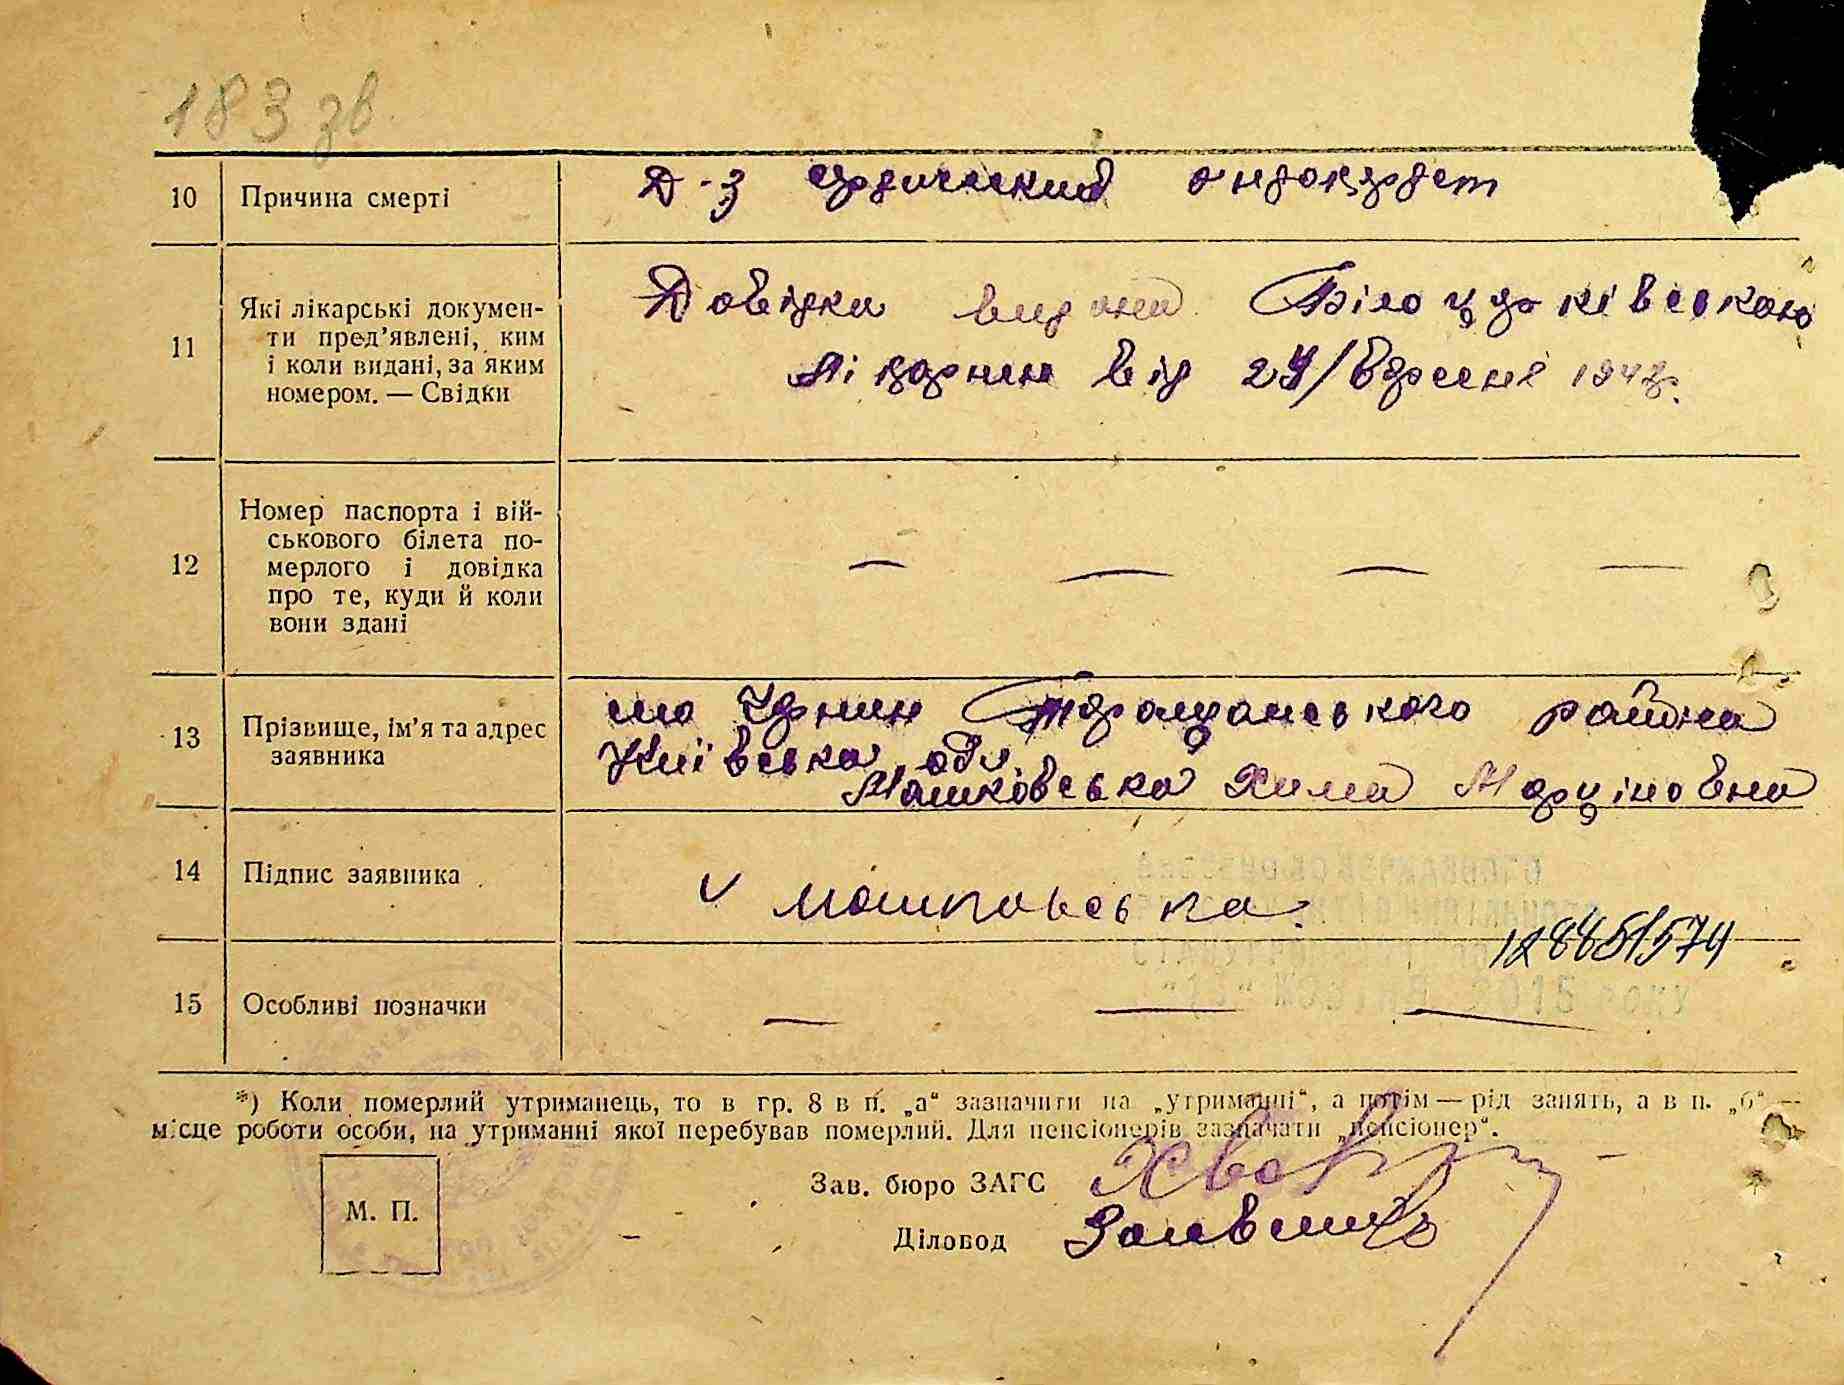 183 зв
10 Причина смерті Д-з ендокардет
11 Які лікарські докумен-
ти пред’явлені, ким
і коли видані, за яким
номером. — Свідки
Довідка видана Білоцерківською
лікарнею від 24/Вересня
12 Номер паспорта і вій-
ськового білета по-
мерлого і довідка
про те, куди й коли
вони здані
— — — —
13 Прізвище, ім’я та адрес
заявника
Таращанського района
Київська обл.
Машковська Хима Марціновна
14 Підпис заявника
v Машковська.
128851574
15 Особливі позначки — — —
*) Коли померлий утриманець, то в гр. 8 в п. „а“ зазначити на „утриманні“, а потім — рід занять, а в п. „б“ —
місце роботи особи, на утриманні якої перебував померлий. Для пенсіонерів зазначати „пенсіонер“.
М. П.
Зав. бюро ЗАГС
Діловод